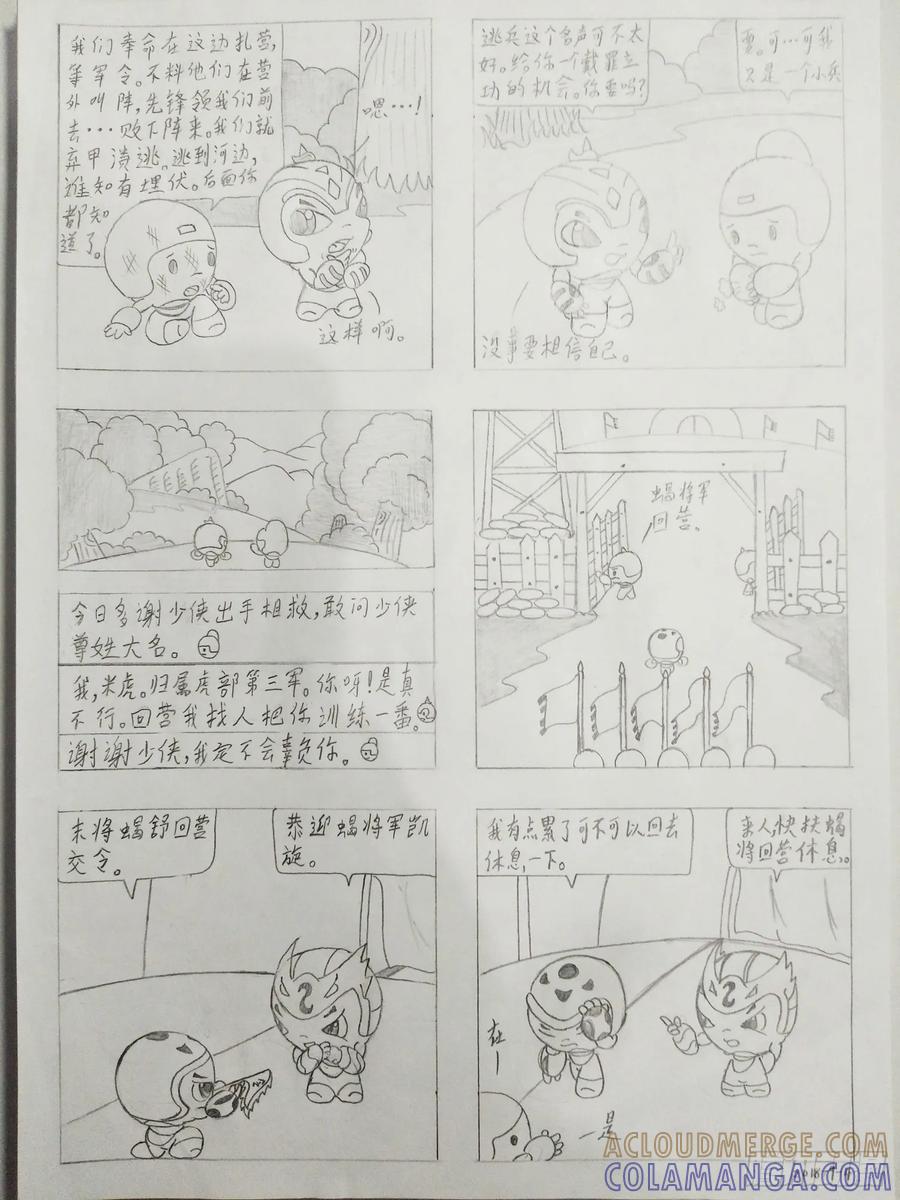 我们奉命在这边扎营,
等军令。不料他们在营
外叫阵,先锋领我们前
去···败下阵来。我们就
弃甲溃逃。逃到河边,
谁知有埋伏。后面你
都知
道了。
嗯…!
这样啊。
逃兵这个名声可不太
好。给你一个戴罪立
功的机会。你要吗?
要。可…可我
只是一个小兵
没事要相信自己。
今日多谢少侠出手相救,敢问少侠
尊姓大名。
我,米虎。归属虎部第三军。你呀!是真
不行。回营我找人把你训练一番。
谢谢少侠,我定不会辜负你。
蝎将军
回营。
末将蝎舒回营
交令。
恭迎蝎将军凯
旋。
我有点累了可不可以回去
休息,一下。
来人,快扶蝎
将回营休息。
在一
一是
ACLOUDMERGE.COM
COLAMANGA.COM